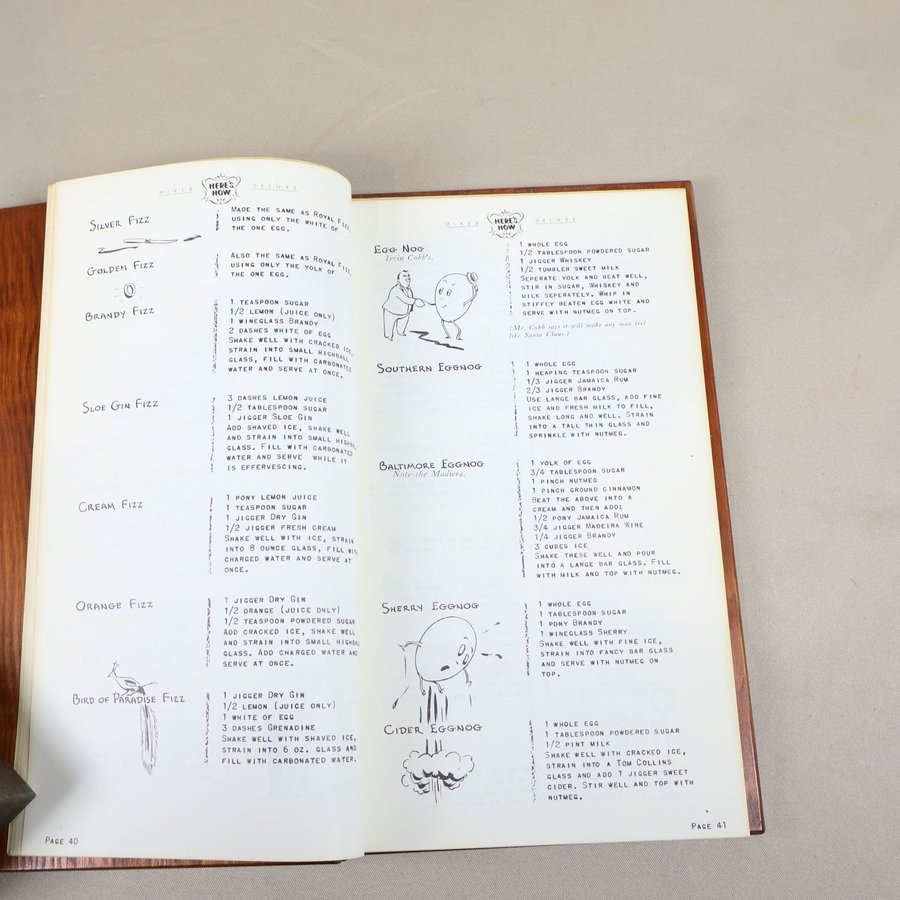 MIXED HERE'S HOW DRINKS
SILVER FIZZ
MADE THE SAME AS ROYAL FIZZ,
USING ONLY THE WHITE OF
THE ONE EGG.
GOLDEN FIZZ
ALSO THE SAME AS ROYAL FIZZ,
USING ONLY THE YOLK OF
THE ONE EGG.
BRANDY FIZZ
1 TEASPOON SUGAR
1/2 LEMON (JUICE ONLY)
1 WINEGLASS BRANDY
2 DASHES WHITE OF EGG
SHAKE WELL WITH CRACKED ICE,
STRAIN INTO SMALL HIGHBALL
GLASS, FILL WITH CARBONATED
WATER AND SERVE AT ONCE.
SLOE GIN FIZZ
3 DASHES LEMON JUICE
1/2 TABLESPOON SUGAR
1 JIGGER SLOE GIN
ADD SHAVED ICE, SHAKE WELL
AND STRAIN INTO SMALL HIGHBALL
GLASS. FILL WITH CARBONATED
WATER AND SERVE WHILE IT
IS EFFERVESCING.
CREAM FIZZ
1 PONY LEMON JUICE
1 TEASPOON SUGAR
1 JIGGER DRY GIN
1/2 JIGGER FRESH CREAM
SHAKE WELL WITH ICE, STRAIN
INTO 8 OUNCE GLASS, FILL WITH
CHARGED WATER AND SERVE AT
ONCE.
ORANGE FIZZ
1 JIGGER DRY GIN
1/2 ORANGE (JUICE ONLY)
1/2 TEASPOON POWDERED SUGAR
ADD CRACKED ICE, SHAKE WELL
AND STRAIN INTO SMALL HIGHBALL
GLASS. ADD CHARGED WATER AND
SERVE AT ONCE.
BIRD OF PARADISE FIZZ
1 JIGGER DRY GIN
1/2 LEMON (JUICE ONLY)
1 WHITE OF EGG
3 DASHES GRENADINE
SHAKE WELL WITH SHAVED ICE,
STRAIN INTO 6 OZ. GLASS AND
FILL WITH CARBONATED WATER.
PAGE 40
MIXED HERE'S HOW DRINKS
EGG NOG
Irvin Cobb's.
1 WHOLE EGG
1/2 TABLESPOON POWDERED SUGAR
1 JIGGER WHISKEY
1/2 TUMBLER SWEET MILK
SEPERATE YOLK AND BEAT WELL,
STIR IN SUGAR, WHISKEY AND
MILK SEPERATELY. WHIP IN
STIFFLY BEATEN EGG WHITE AND
SERVE WITH NUTMEG ON TOP.
(Mr. Cobb says it will make any man feel
like Santa Claus.)
SOUTHERN EGGNOG
1 WHOLE EGG
1 HEAPING TEASPOON SUGAR
1/3 JIGGER JAMAICA RUM
2/3 JIGGER BRANDY
USE LARGE BAR GLASS, ADD FINE
ICE AND FRESH MILK TO FILL,
SHAKE LONG AND WELL. STRAIN
INTO A TALL THIN GLASS AND
SPRINKLE WITH NUTMEG.
BALTIMORE EGGNOG
Note the Madiera.
1 YOLK OF EGG
3/4 TABLESPOON SUGAR
1 PINCH NUTMEG
1 PINCH GROUND CINNAMON
BEAT THE ABOVE INTO A
CREAM AND THEN ADD:
1/2 PONY JAMAICA RUM
3/4 JIGGER MADEIRA WINE
1/4 JIGGER BRANDY
3 CUBES ICE
SHAKE THESE WELL AND POUR
INTO A LARGE BAR GLASS. FILL
WITH MILK AND TOP WITH NUTMEG.
SHERRY EGGNOG
1 WHOLE EGG
1 TABLESPOON SUGAR
1 PONY BRANDY
1 WINEGLASS SHERRY
SHAKE WELL WITH FINE ICE,
STRAIN INTO FANCY BAR GLASS
AND SERVE WITH NUTMEG ON
TOP.
CIDER EGGNOG
1 WHOLE EGG
1 TABLESPOON POWDERED SUGAR
1/2 PINT MILK
SHAKE WELL WITH CRACKED ICE,
STRAIN INTO A TOM COLLINS
GLASS AND ADD 1 JIGGER SWEET
CIDER. STIR WELL AND TOP WITH
NUTMEG.
PAGE 41